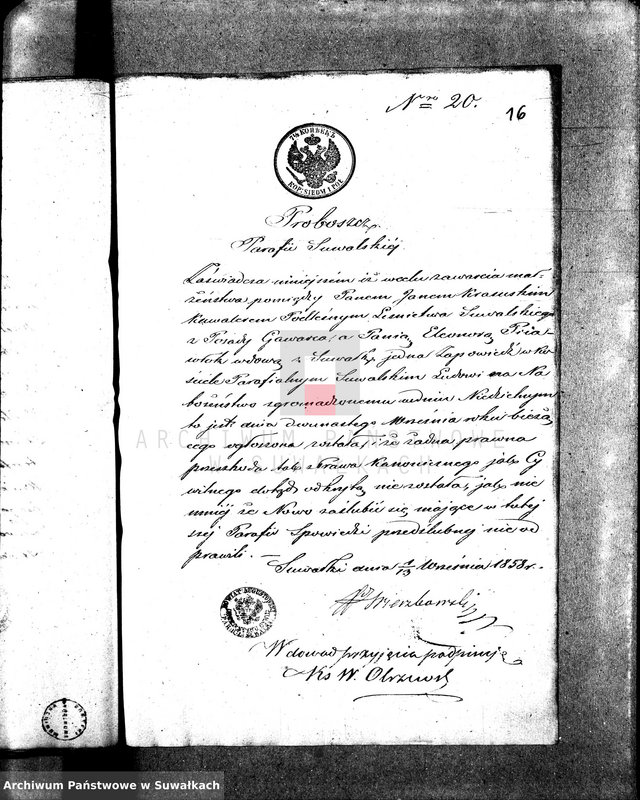 Nro 20.
16
7½ КОПѢЕКЪ
KOP. SIEDM I PÓŁ
Proboszcz
Parafii Suwalskiéj
Zaświadcza niniejszém iż w celu zawarcia mał-
żeństwa pomiędzy Panem Janem Krasuskim
Kawalerem Podleśnym Leśnictwa Suwalskiego
z Posady Gawarca, a Panią Eleonorą
wdową z Suwałk, jedna Zapowiedź w Ko
ściele Parafialnym Suwalskim Ludowi na Na
bożeństwo zgromadzonemu w dniu Niedzielnym
to jest dnia dwunastego Września roku bieżą
cego ogłoszona została, i że żadna prawna
przeszkoda tak z Prawa kanonicznego jak Cy
wilnego dotąd odkrytą nie została, jak nie
mniéj że Nowo zaślubić się mające w tutej
széj Parafii Spowiedzi przedślubnéj nie od
prawili. —
Suwałki dnia 1/13 Września 1858 r.
Wierzbowski
W dowód przyjęcia podpisuję
Xs W. Olszewski
ARCHIWUM PAŃSTWOWE
W SUWAŁKACH
Archiwum Państwowe w Suwałkach